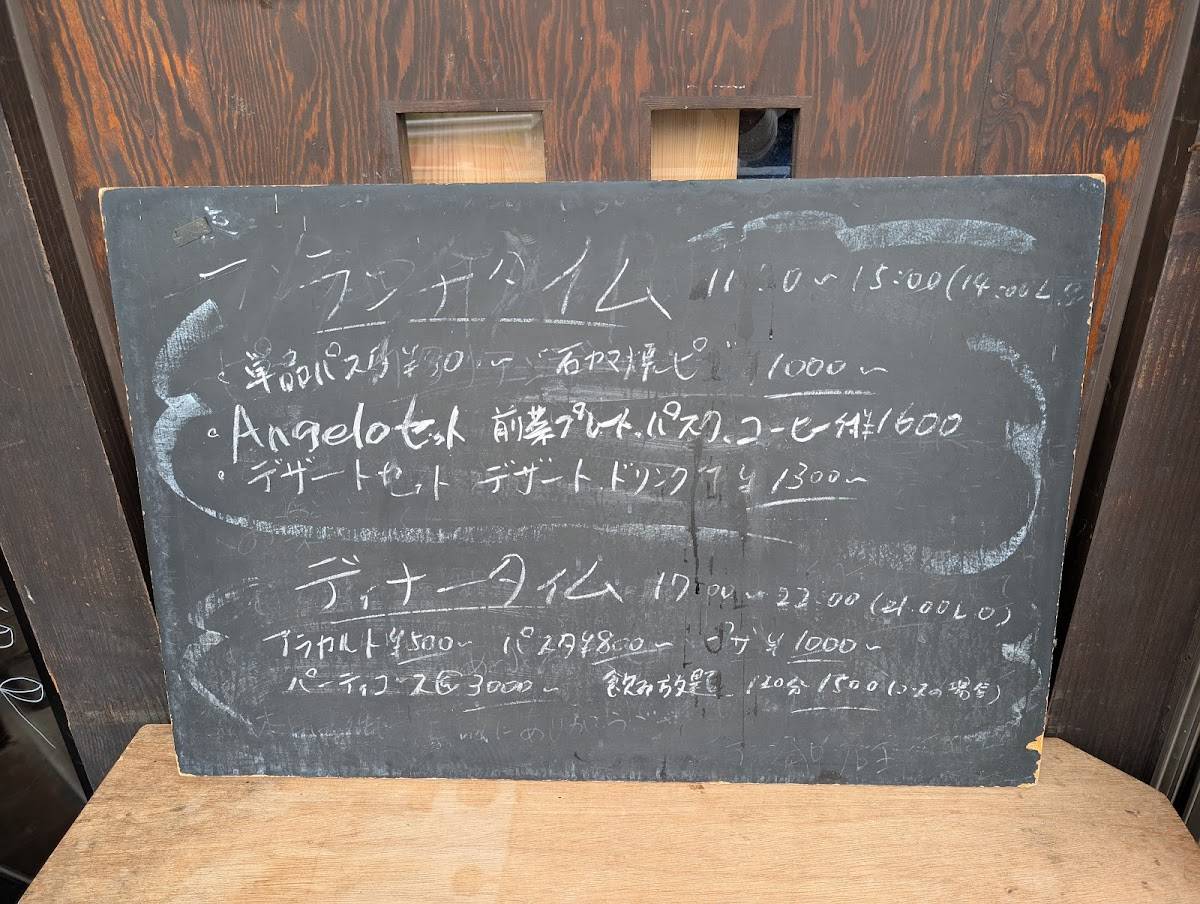 ランチタイム 11:30~15:00(14:00L
・単品パスタ¥ 石カマ焼ピ 1000~
・Angeloセット 前菜プレート、パスタ、コーヒー付¥1600
・デザートセット デザート、ドリンク付¥1300~
ディナータイム 17:00~22:00(21:00LO)
アラカルト¥500~ パスタ¥800~ ピザ¥1000~
パーティコース 3000~ 飲み放題 120分1500(コースの場合)